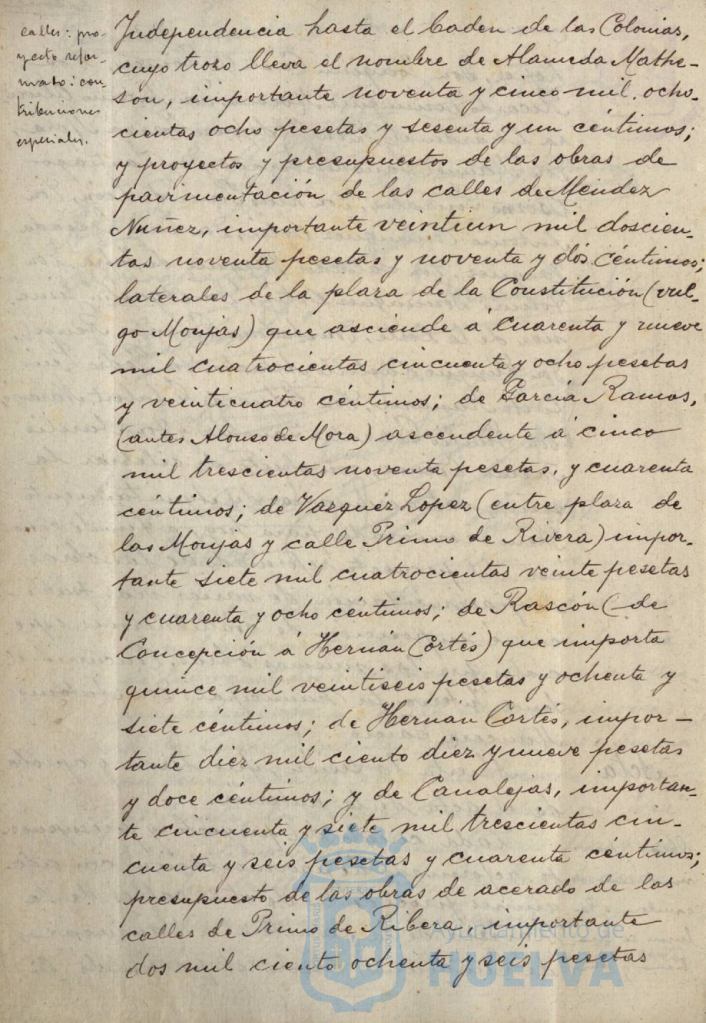 calles: pro-
yecto refor-
mato: con-
tribuciones
especiales.
Independencia hasta el baden de las Colonias,
cuyo trozo lleva el nombre de Alameda Mathe-
son, importante noventa y cinco mil ocho-
cientas ocho pesetas y sesenta y un céntimos;
y proyectos y presupuestos de las obras de
pavimentación de las calles de Méndez
Nuñez, importante veintiun mil doscien-
tas noventa pesetas y noventa y dos céntimos;
laterales de la plaza de la Constitución (vul-
go Monjas) que asciende á cuarenta y nueve
mil cuatrocientas cincuenta y ocho pesetas
y veinticuatro céntimos; de García Ramos,
(antes Alonso de Mora) ascendente á cinco
mil trescientas noventa pesetas, y cuarenta
céntimos; de Vazquéz Lopez (entre plaza de
las Monjas y calle Primo de Rivera) impor-
tante siete mil cuatrocientas veinte pesetas
y cuarenta y ocho céntimos; de Rascón (de
Concepción á Hernán Cortés) que importa
quince mil veintiseis pesetas y ochenta y
siete céntimos; de Hernán Cortés, impor-
tante diez mil ciento diez y nueve pesetas
y doce céntimos; y de Canalejas, importan-
te cincuenta y siete mil trescientas cin-
cuenta y seis pesetas y cuarenta céntimos;
presupuesto de las obras de acerado de las
calles de Primo de Ribera, importante
dos mil ciento ochenta y seis pesetas
Ayuntamiento de
HUELVA